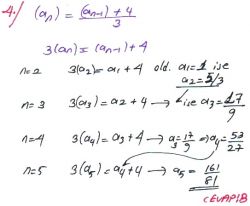 4.) (an) = (an-1) + 4 / 3
3(an) = (an-1) + 4
n=2 3(a2) = a1 + 4 old. a1=1 ise a2 = 5/3
n=3 3(a3) = a2 + 4 → ise a3 = 17/9
n=4 3(a4) = a3 + 4 → a3 = 17/9 ⇒ a4 = 53/27
n=5 3(a5) = a4 + 4 → a5 = 161/81
CEVAP B